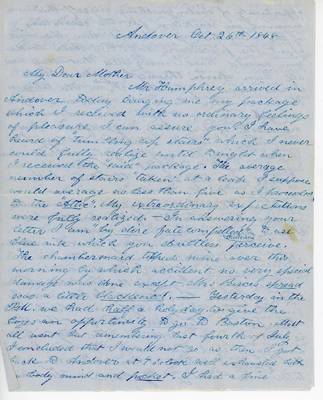 Andover Oct. 26th 1848
My Dear Mother
Mr Humphrey arrived in
Andover Today bringing me my package
which I received with no ordinary feelings
of pleasure I can assure you. I have
heard of running "up stairs" which I never
could fully realize until tonight when
I received the said "package". The average
number of stairs "taken" at a time I suppose
would average no less than five as I
to the "Attic". My extraordinary expectations
were fully realized. — In answering your
letter I am by dire fate compelled to use
blue ink which you doubtless perceive.
The chambermaid tipped mine over this
morning by which accident no very special
damage was done except Mrs Pierces spread
was a little blackened. — Yesterday in the
Hall we had half a holyday to give the
boys an opportunity to go to Boston. Most
all went but remembering last fourth of July
I concluded that I would not go as then I got
back to Andover at 7 o'clock well exhausted with
body mind and pocket. I had a fine